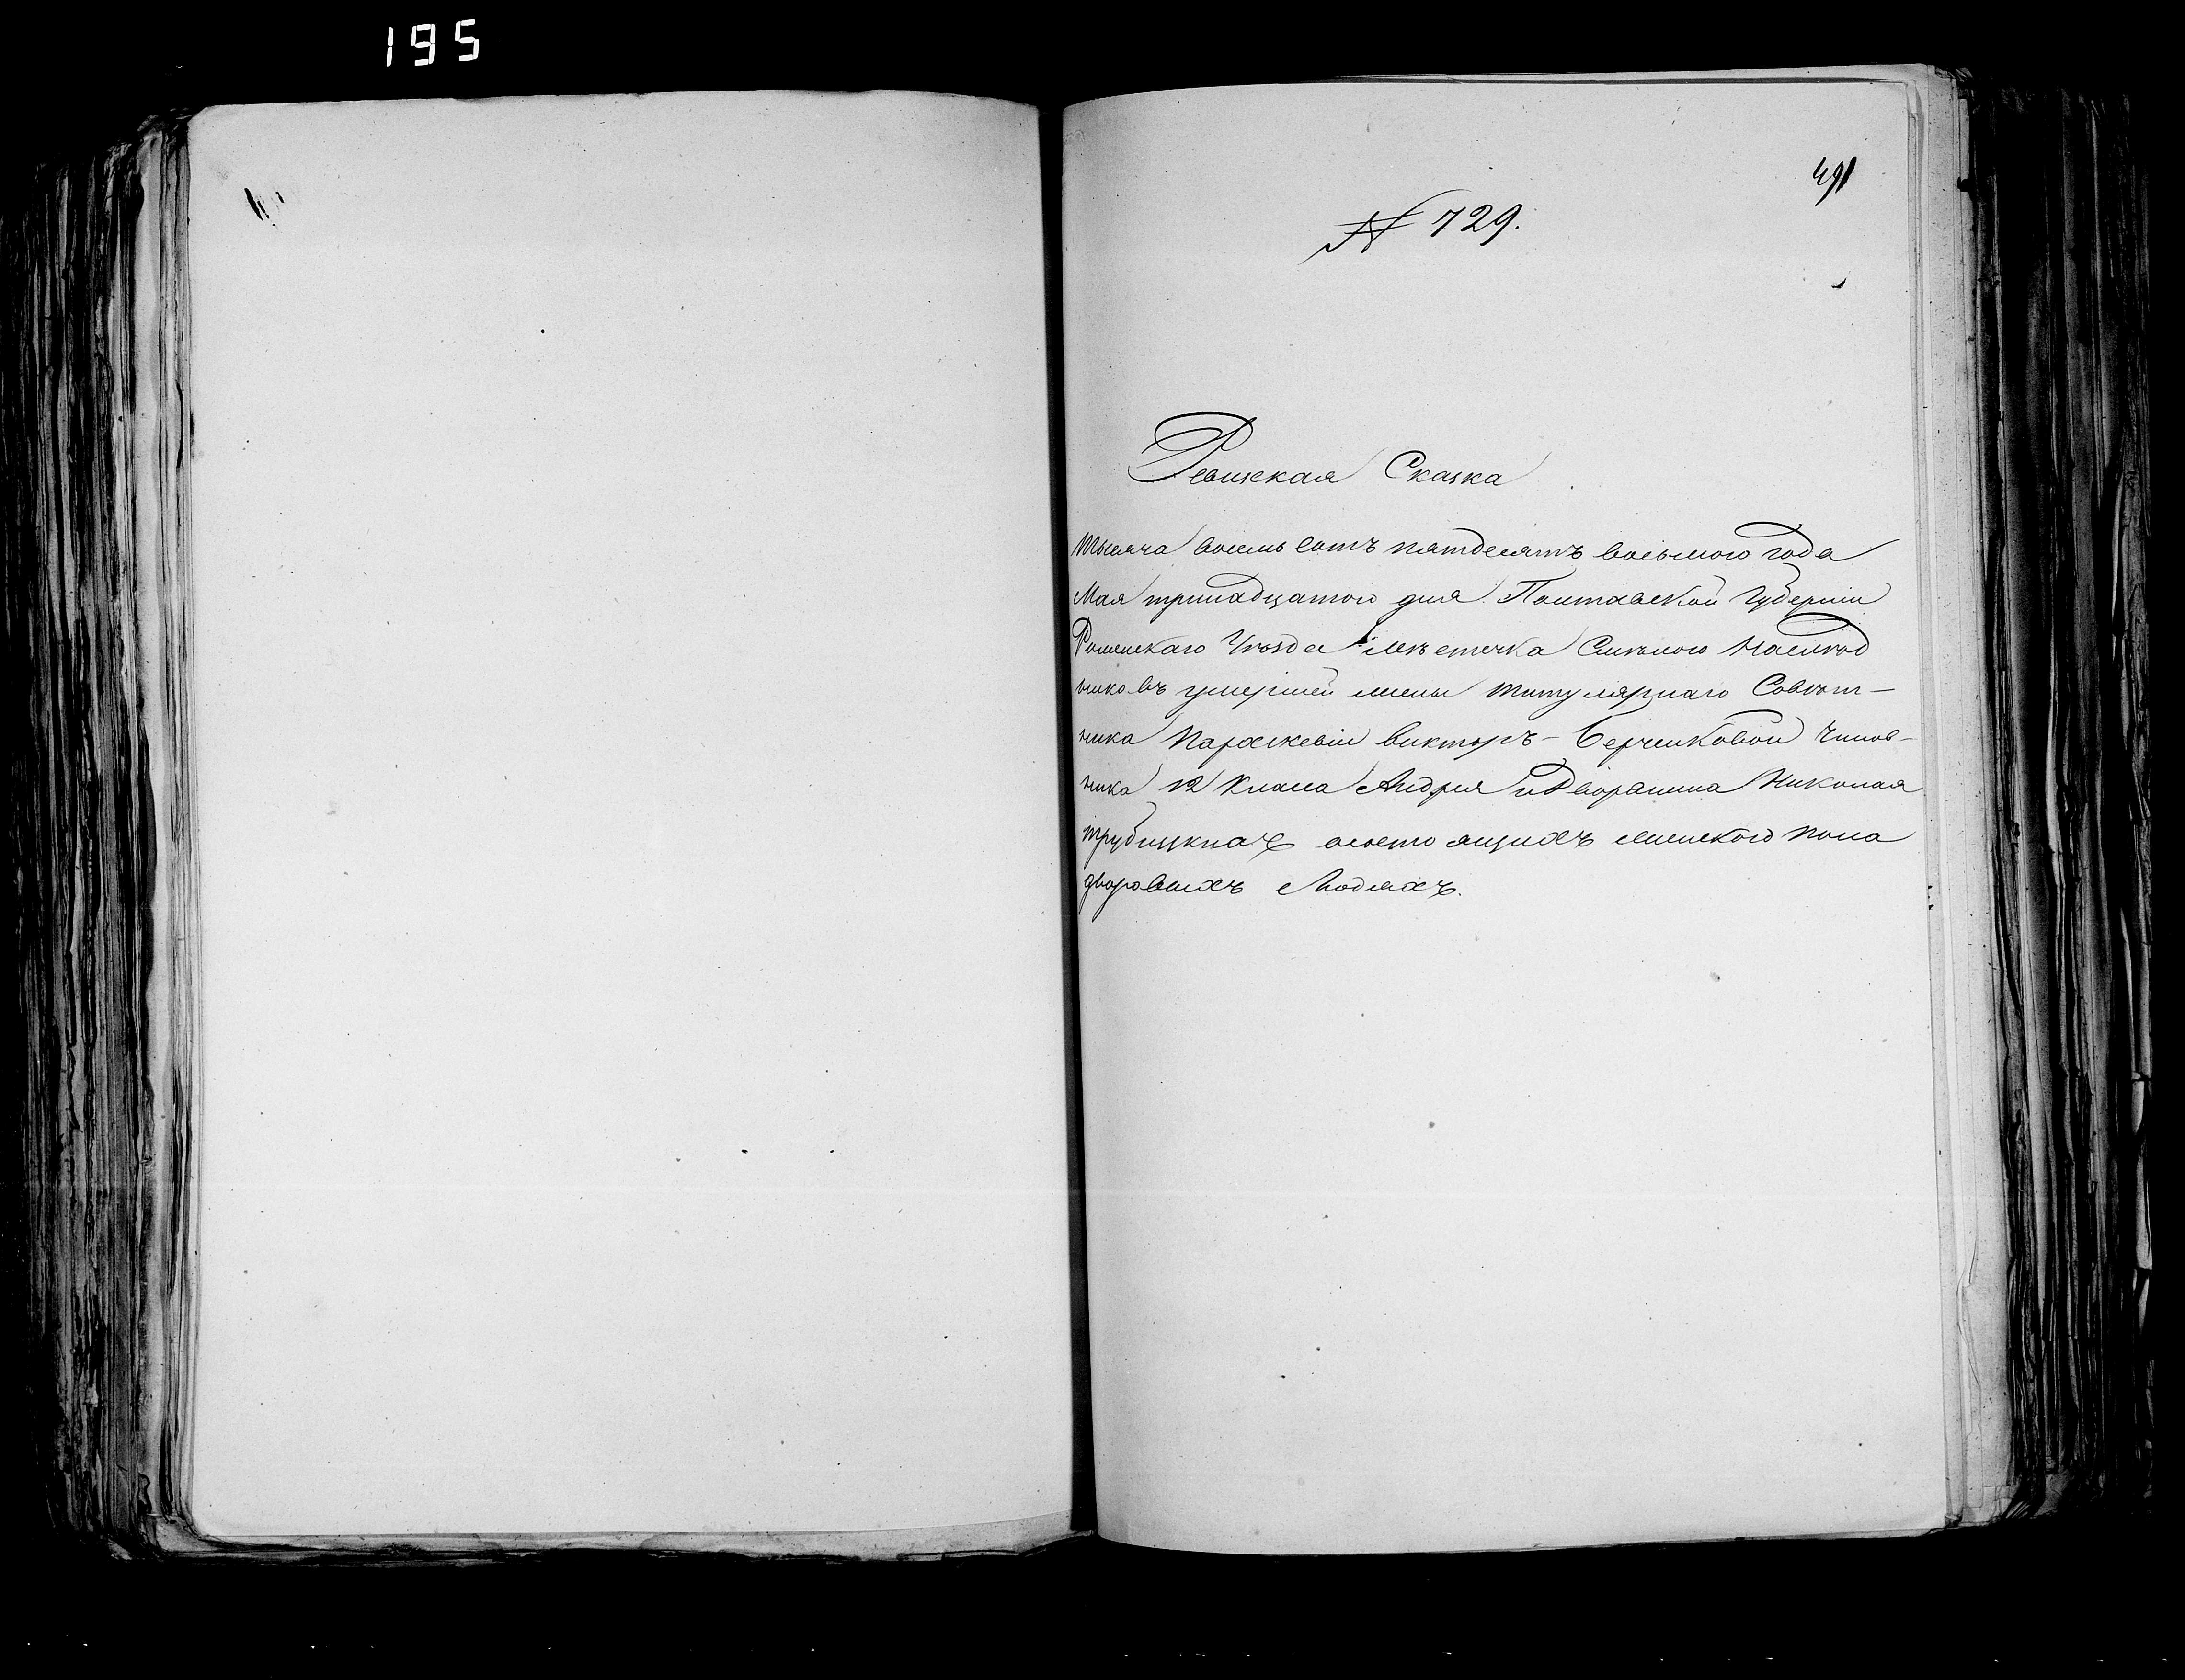 195
491
№ 729.
Ревизская Сказка
тысяча восемь сотъ пятдесятъ восьмого года
Мая тринадцатого дня Полтавской Губерніи
Роменскаго Уѣзда мѣстечка Смѣлого Наслѣд
никовъ умершей жены титулярнаго Совѣт-
ника Параскевіи Викторъ-Берченковой Чинов-
ника 12 Класа Андрея и Дворянина Николая
состоящихъ женского пола
дворовыхъ Людяхъ.